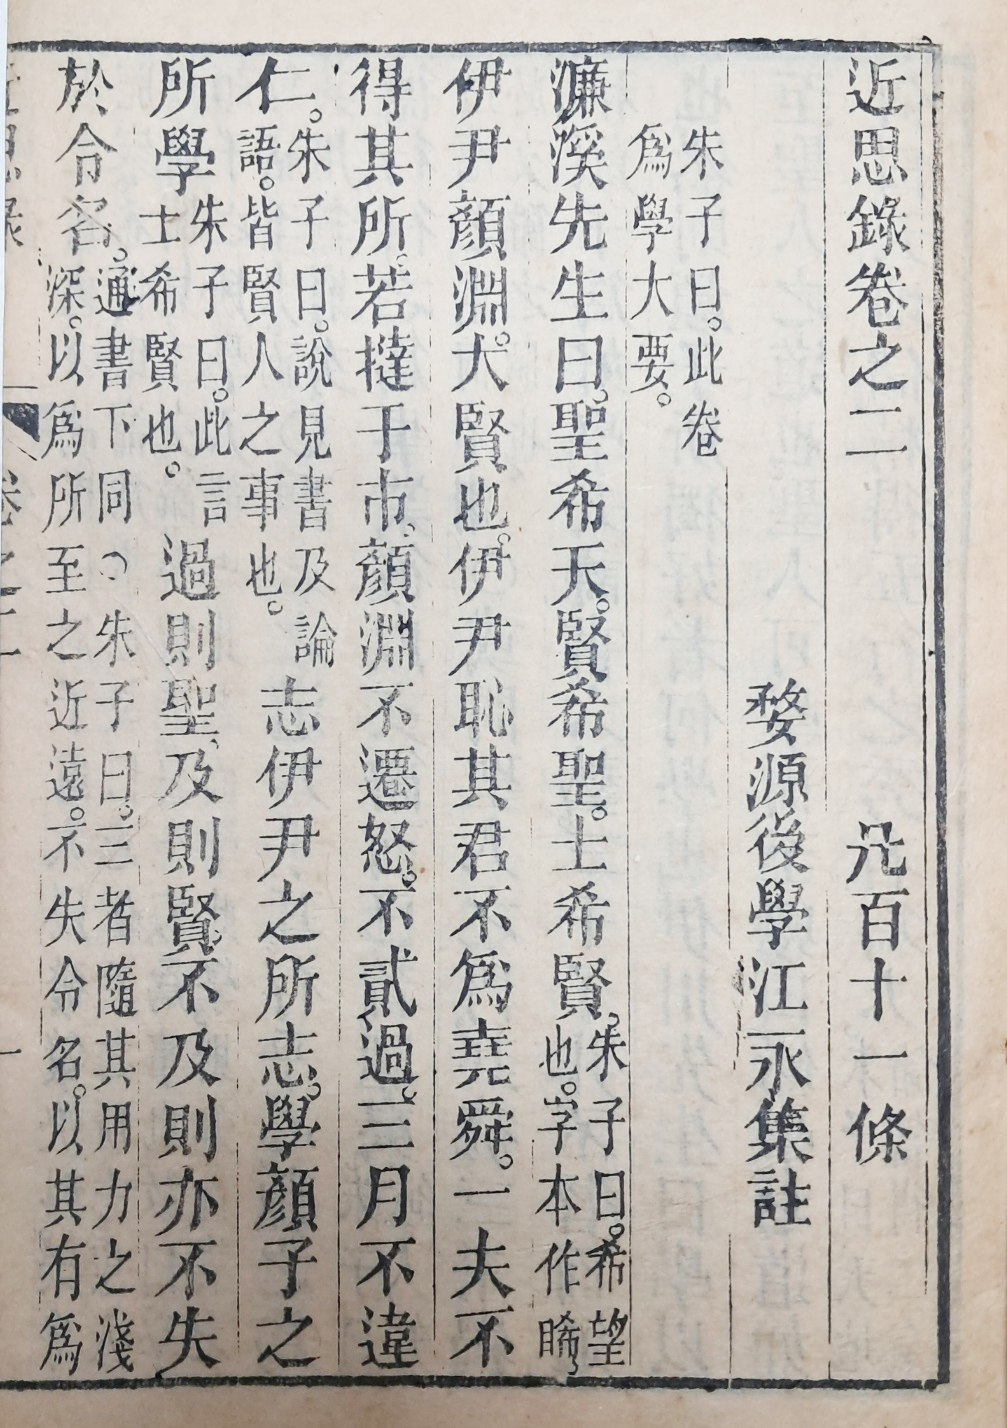 近思錄卷之二　凡百十一條
婺源後學江永集註
朱子曰。此卷
爲學大要。
濂溪先生曰。聖希天。賢希聖。士希賢。朱子曰。希望
也。字本作睎。
伊尹顏淵。大賢也。伊尹恥其君不爲堯舜。一夫不
得其所。若撻于市。顏淵不遷怒。不貳過。三月不違
仁。朱子曰。說見書及論
語。皆賢人之事也。志伊尹之所志。學顏子之
所學朱子曰。此言
士希賢也。過則聖、及則賢、不及則亦不失
於令名。通書下同○朱子曰。三者隨其用力之淺
深。以爲所至之近遠。不失令名。以其有爲